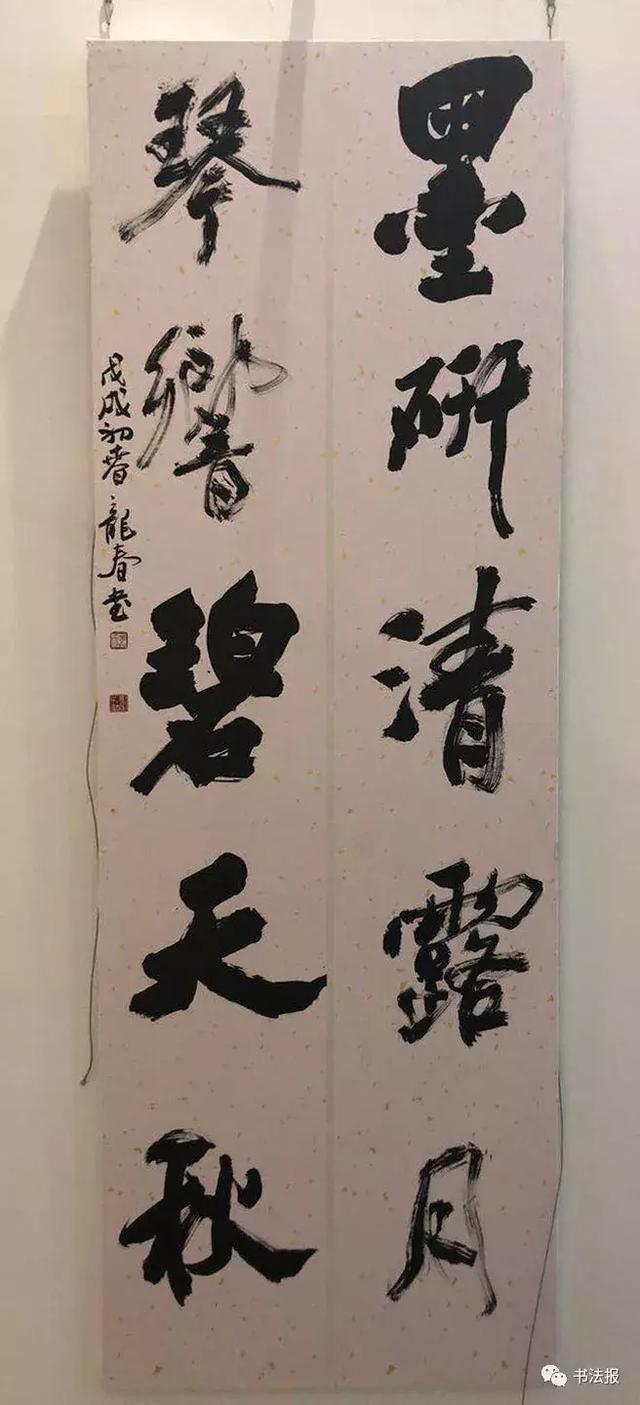 墨研清露月
琴響碧天秋
戊戌初春龍春書
书法报